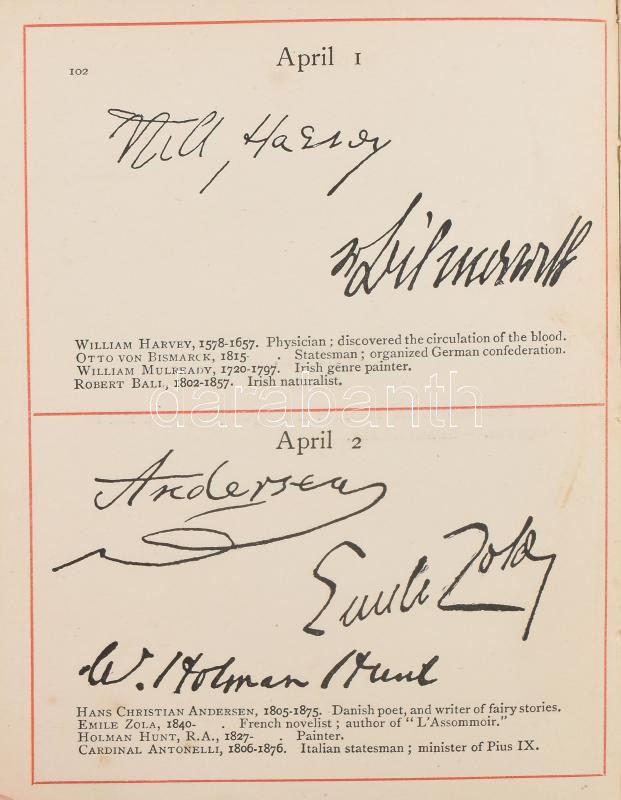 April 1
102
Will, Harvey
v Bismarck
WILLIAM HARVEY, 1578-1657. Physician ; discovered the circulation of the blood.
OTTO VON BISMARCK, 1815- . Statesman ; organized German confederation.
WILLIAM MULREADY, 1720-1797. Irish genre painter.
ROBERT BALL, 1802-1857. Irish naturalist.
darabanth
April 2
Andersen
Emile Zola
W. Holman Hunt
HANS CHRISTIAN ANDERSEN, 1805-1875. Danish poet, and writer of fairy stories.
EMILE ZOLA, 1840- . French novelist ; author of " L'Assommoir."
HOLMAN HUNT, R.A., 1827- . Painter.
CARDINAL ANTONELLI, 1806-1876. Italian statesman ; minister of Pius IX.